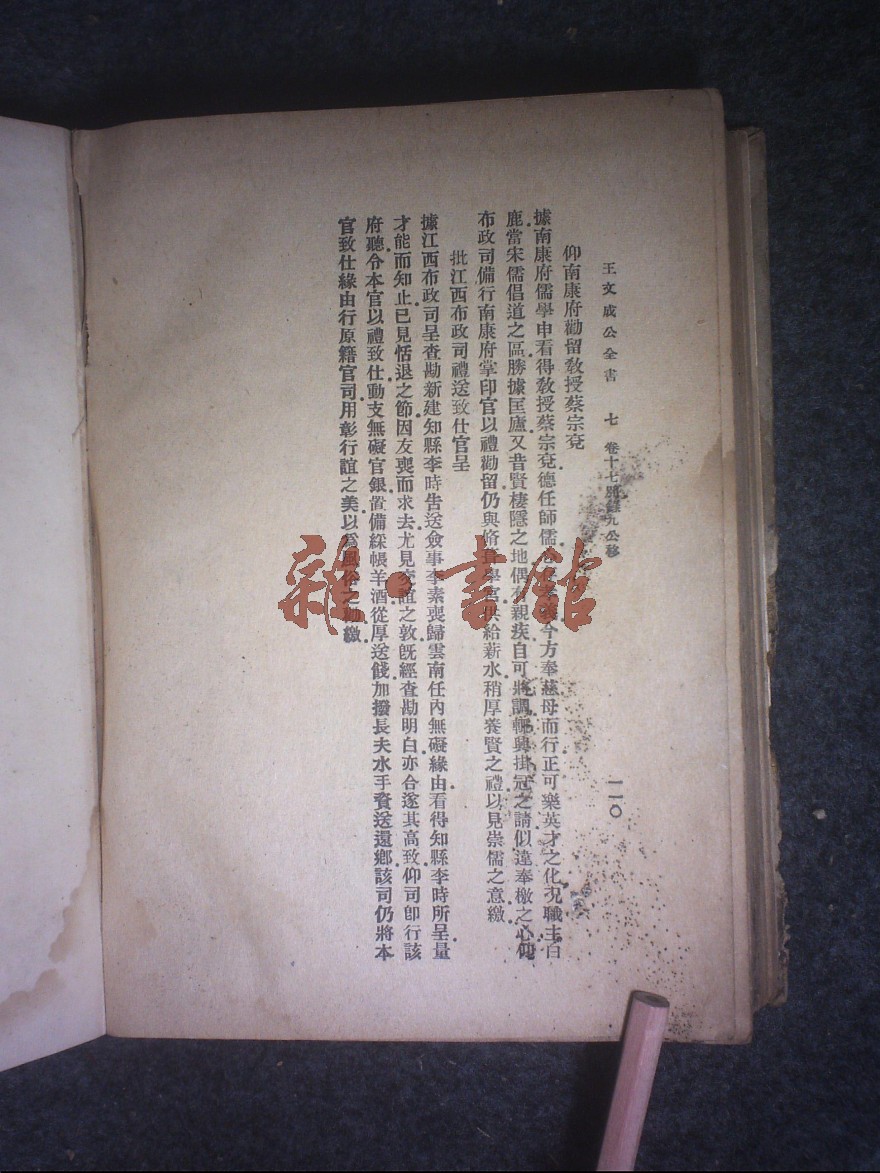 王文成公全書 七 卷十七別錄九公移 一一〇
仰南康府勸留教授蔡宗兗
據南康府儒學申看得教授蔡宗兗德任師儒今方奉慈母而行正可樂英才之化況職主白
鹿當宋儒倡道之區勝據匡廬又昔賢棲隱之地偶有親疾自可將調輒興掛冠之請似違奉檄之心仰
布政司備行南康府掌印官以禮勸留仍與脩葺學宮供給薪水稍厚養賢之禮以見崇儒之意繳
批江西布政司禮送致仕官呈
據江西布政司呈查勘新建知縣李時告送僉事李素喪歸雲南任內無礙緣由看得知縣李時所呈量
才能而知止已見恬退之節因友喪而求去尤見交誼之敦既經查勘明白亦合遂其高致仰司卽行該
府聽令本官以禮致仕動支無礙官銀置備綵帳羊酒從厚送餞加撥長夫水手賫送還鄉該司仍將本
官致仕緣由行原籍官司用彰行誼之美以爲風俗之繳
雜·書館